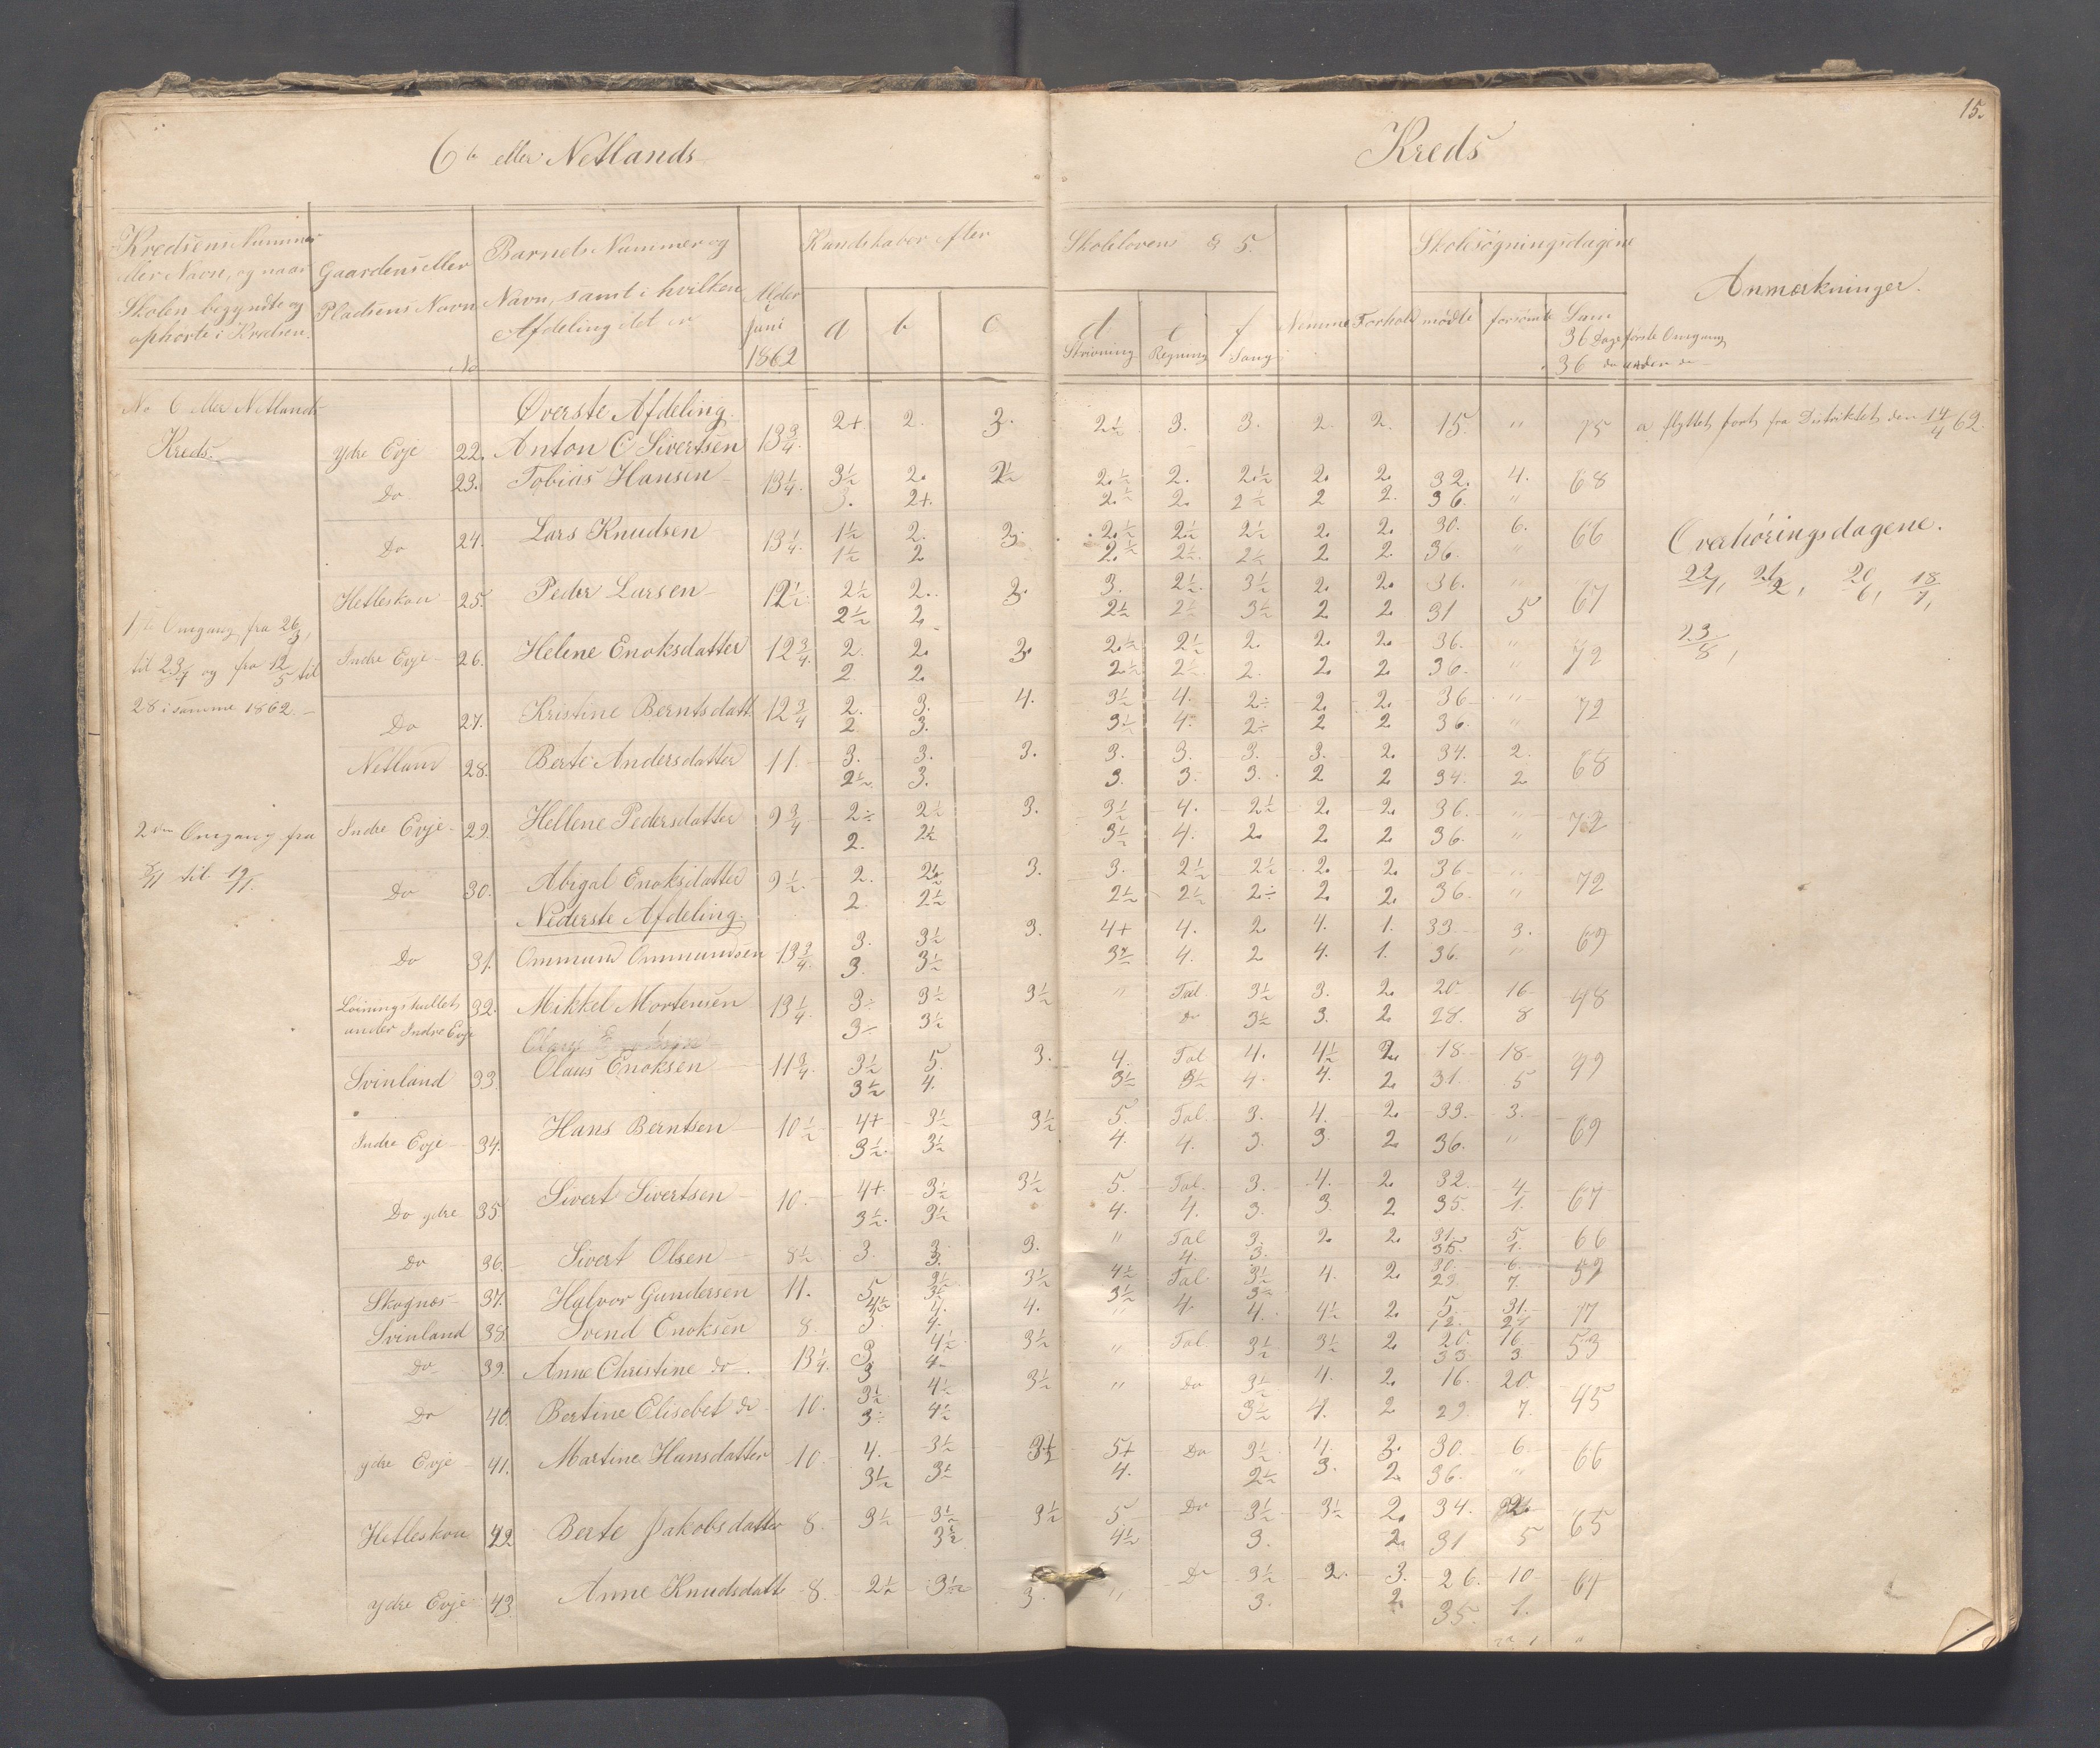 15.
6te eller Netlands Kreds
Kredsens Nummer eller Navn, og naar Skolen begyndte og ophørte i Kredsen.
Gaardens eller Pladsens Navn
No
Barnets Nummer og Navn, samt i hvilken Afdeling det er
Alder i Juni 1862
Kundskaber efter Skoleloven § 5.
a b c
d Skrivning
e Regning
f Sang
Nemme Forhold
Skolesøgningsdagene
mødte forsømte Sum
36 Dage første Omgang
36 do anden do
Anmærkninger.
No 6 eller Netlands Kreds.
1ste Omgang fra 26/3, til 23/4 og fra 12/5 til 28 i samme 1862.
2den Omgang fra til 19/7.
Øverste Afdeling.
Ydre Evje 22. Anton C Sivertsen 13 3/4. 2+ 2. 3. 2 1/2 3. 3. 2. 2. 15. " 15 a flyttet fort fra Distriktet den 14/4 62.
Do 23. Tobias Hansen 13 1/4. 3 1/2 2. 2 1/2 2 1/2 2. 2 1/2 2. 2. 32. 4. 68
3. 2+. 2 1/2 2. 2 1/2 2 2. 36. "
Do 24. Lars Knudsen 13 1/4. 1 1/2 2. 3. 2 1/2 2 1/2 2 1/2 2. 2. 30. 6. 66
1 1/2 2 2 1/2 2 1/2 2 1/2 2 2. 36. "
Overhøringsdagene.
22/4, 21/2, 20/6, 18/7,
23/8,
Hetleskou 25. Peder Larsen 12 1/2 2 1/2 2. 3. 3. 2 1/2 3 1/2 2. 2. 36. " 67
2 1/2 2 2 1/2 2 1/2 3 1/2 2 2. 31 5
Indre Evje 26. Helene Enoksdatter 12 3/4. 2. 2. 3. 2 1/2 2 1/2 2. 2. 2. 36. " 72
2 2. 2 1/2 2 1/2 2. 2. 2. 36. "
Do 27. Kristine Berntsdatt 12 3/4 2. 3. 4. 3 1/2 4. 2÷ 2. 2. 36 " 72
2. 3. 3 1/2 4. 2÷ 2 2 36. "
Netland 28. Berte Andersdatter 11. 3. 3. 3. 3. 3. 3. 3. 2. 34. 2. 68
2 1/2 3. 3. 3. 3. 2 2 34. 2
Indre Evje 29. Hellene Pedersdatter 9 3/4 2÷ 2 1/2 3. 3 1/2 4. 2 1/2 2. 2. 36. " 72
2. 2 1/2 3 1/2 4. 2. 2 2 36. "
Do 30. Abigal Enoksdatter 9 1/2. 2. 2 1/2 3. 3. 2 1/2 2 1/2 2. 2. 36 " 72
2. 2 1/2 2 1/2 2 1/2 2÷ 2 2. 36. "
Nederste Afdeling.
Do 31. Ommund Ommundsen 13 3/4. 3. 3 1/2 3. 4+ 4. 2 4. 1. 33. 3. 69
3. 3 1/2 3 1/2 4. 2 4. 1. 36. "
under Indre Evje 32. Mikkel Mortensen 13 1/4 3÷ 3 1/2 3 1/2 " Tal 3 1/2 3. 2. 20 16. 48
3÷ 3 1/2 Do 3 1/2 3. 2. 28. 8
Svinland 33. Olaus Enoksen 11 3/4. 3 1/2 5. 3. 4. Tal 4. 4 1/2 2. 18. 18. 49
3 1/2 4. 3 1/2 3 1/2 4. 4. 2. 31. 5
Indre Evje 34. Hans Berntsen 10 1/2 4+ 3 1/2 3 1/2 5. Tal. 3. 4. 2. 33. 3. 69
3 1/2. 3 1/2 4. 4. 3. 3. 2. 36. "
Do ydre 35. Sivert Sivertsen 10. 4+. 3 1/2 3 1/2 5. Tal. 3. 4. 2. 32. 4. 67
3 1/2. 3 1/2 4. 4. 3. 3. 2 35. 1.
Do 36. Sivert Olsen 8 1/2 3. 3. 3. " Tal 3. 2. 2. 31. 5 66
3. 4. 3. 35. 1.
Skognæs 37. Halvor Gundersen 11. 5 3 1/2 3 1/2 4 1/2 Tal 3 1/2 4. 2. 30. 6. 59
4 1/2 3 1/2 3 1/2 4. 3 1/2 29. 7.
Svinland 38. Svend Enoksen 8. 5. 4. 4. " 4. 4 1/2 2. 5. 31. 17
4. 12. 24
Do 39. Anne Christine do. 13 1/4. 3 4 1/2 3 1/2 " Tal. 3 1/2 3 1/2 2. 20. 16. 53
3 4. 33. 3.
Do 40. Bertine Elisebet do 10. 3 1/2 4 1/2 3 1/2 " Do 3 1/2 4. 2. 16. 20. 45
3÷ 4 1/2 3 1/2 4. 2 29. 7.
Ydre Evje 41. Martine Hansdatter 10. 4. 3 1/2 3 1/2 5+ Do 3 1/2 4. 2. 30. 6. 66
3 1/2 3 1/2 4. 2 1/2 3. 2. 36. "
Hetleskou 42 Berte Jakobsdatter 8. 3 1/2 3 1/2 3 1/2 5 Do 3 1/2 3 1/2 2. 34. 2. 65
3 1/2 4 1/2 3. 2. 31 5
Ydre Evje 43. Anne Knudsdatt 8. 2 1/2 3 1/2 3. " Do 3 1/2 2. 3. 26. 10. 61
3. 2. 35. 1.